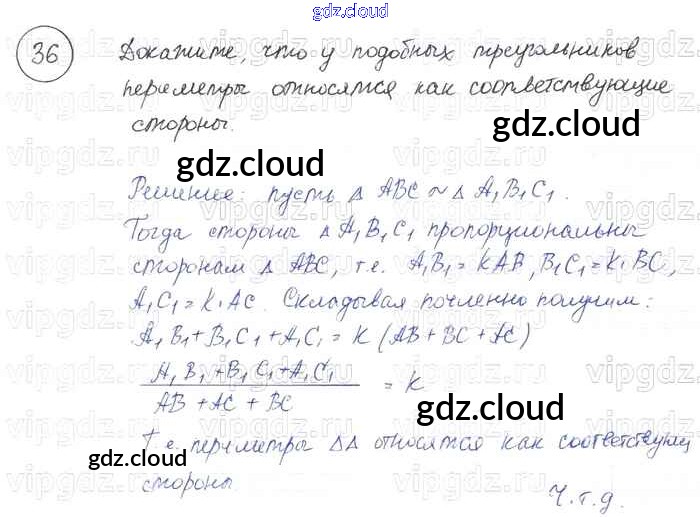 gdz.cloud
36 Докажите, что у подобных треугольников
периметры относятся как соответствующие
стороны.
gdz.cloud
gdz.cloud
Решение: пусть Δ ABC ~ Δ A₁B₁C₁.
Тогда стороны Δ A₁B₁C₁ пропорциональны
сторонам Δ ABC, т.е. A₁B₁=KAB, B₁C₁=K·BC,
A₁C₁=K·AC. Складывая почленно получим:
A₁B₁+B₁C₁+A₁C₁=K(AB+BC+AC)
A₁B₁+B₁C₁+A₁C₁
AB+AC+BC
= K
gdz.cloud
Т.е. периметры ΔΔ относятся как соответствующ
gdz.cloud
стороны
Ч.т.д.
vipgdz